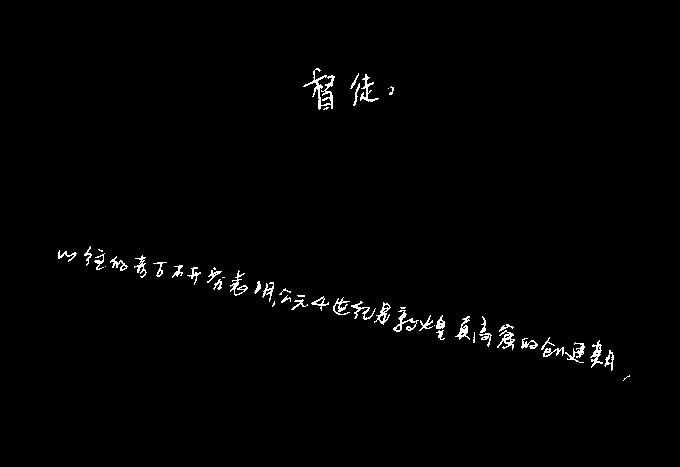 督徒。
以往的考古研究表明,公元4世纪是敦煌莫高窟的创建期,